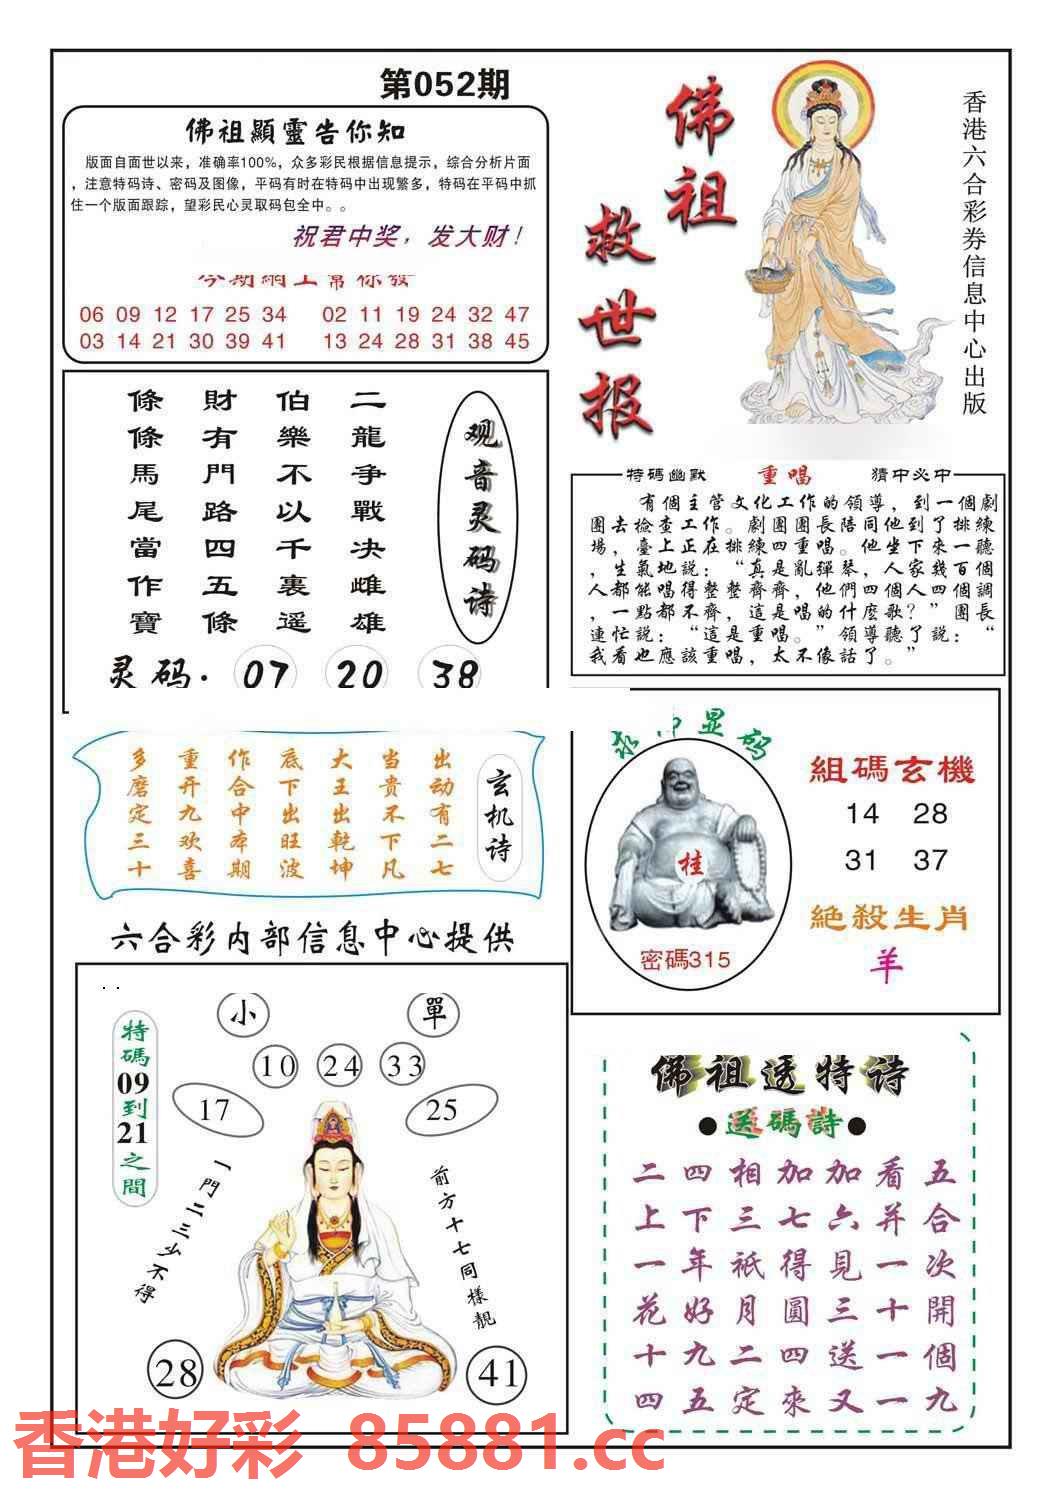 第052期
佛祖顯靈告你知
版面自面世以来，准确率100%，众多彩民根据信息提示，综合分析片面
，注意特码诗、密码及图像，平码有时在特码中出现繁多，特码在平码中抓
住一个版面跟踪，望彩民心灵取码包全中。。
祝君中奖，发大财！
今期網上幫你發
06 09 12 17 25 34 02 11 19 24 32 47
03 14 21 30 39 41 13 24 28 31 38 45
佛祖
救世报
香港六合彩券信息中心出版
观音灵码诗
二龍争戰决雌雄
伯樂不以千裏遥
財有門路四五條
條條馬尾當作寶
灵码. 07 20 38
特碼幽默 重唱 猜中必中
有個主管文化工作的領導，到一個劇
團去檢查工作。劇團團長陪同他到了排練
場，臺上正在排練四重唱。他坐下來一聽
，生氣地説：“真是亂彈琴，人家幾百個
人都能唱得整整齊齊，他們四個人四個調
，一點都不齊，這是唱的什麽歌？”團長
連忙説：“這是重唱。”領導聽了説：“
我看也應該重唱，太不像話了。”
玄机诗
出动有二七
当贵不下凡
大王出乾坤
底下出旺波
作合中本期
重开九欢喜
多磨定三十
显码
桂
密碼315
組碼玄機
14 28
31 37
絕殺生肖
羊
六合彩内部信息中心提供
特碼09到21之間
小 單
10 24 33
17 25
一門二三少不得
前方十七同樣靚
28 41
佛祖透特诗
●送碼詩●
二四相加加看五
上下三七六并合
一年祗得見一次
花好月圓三十開
十九二四送一個
四五定來又一九
香港好彩 85881.cc